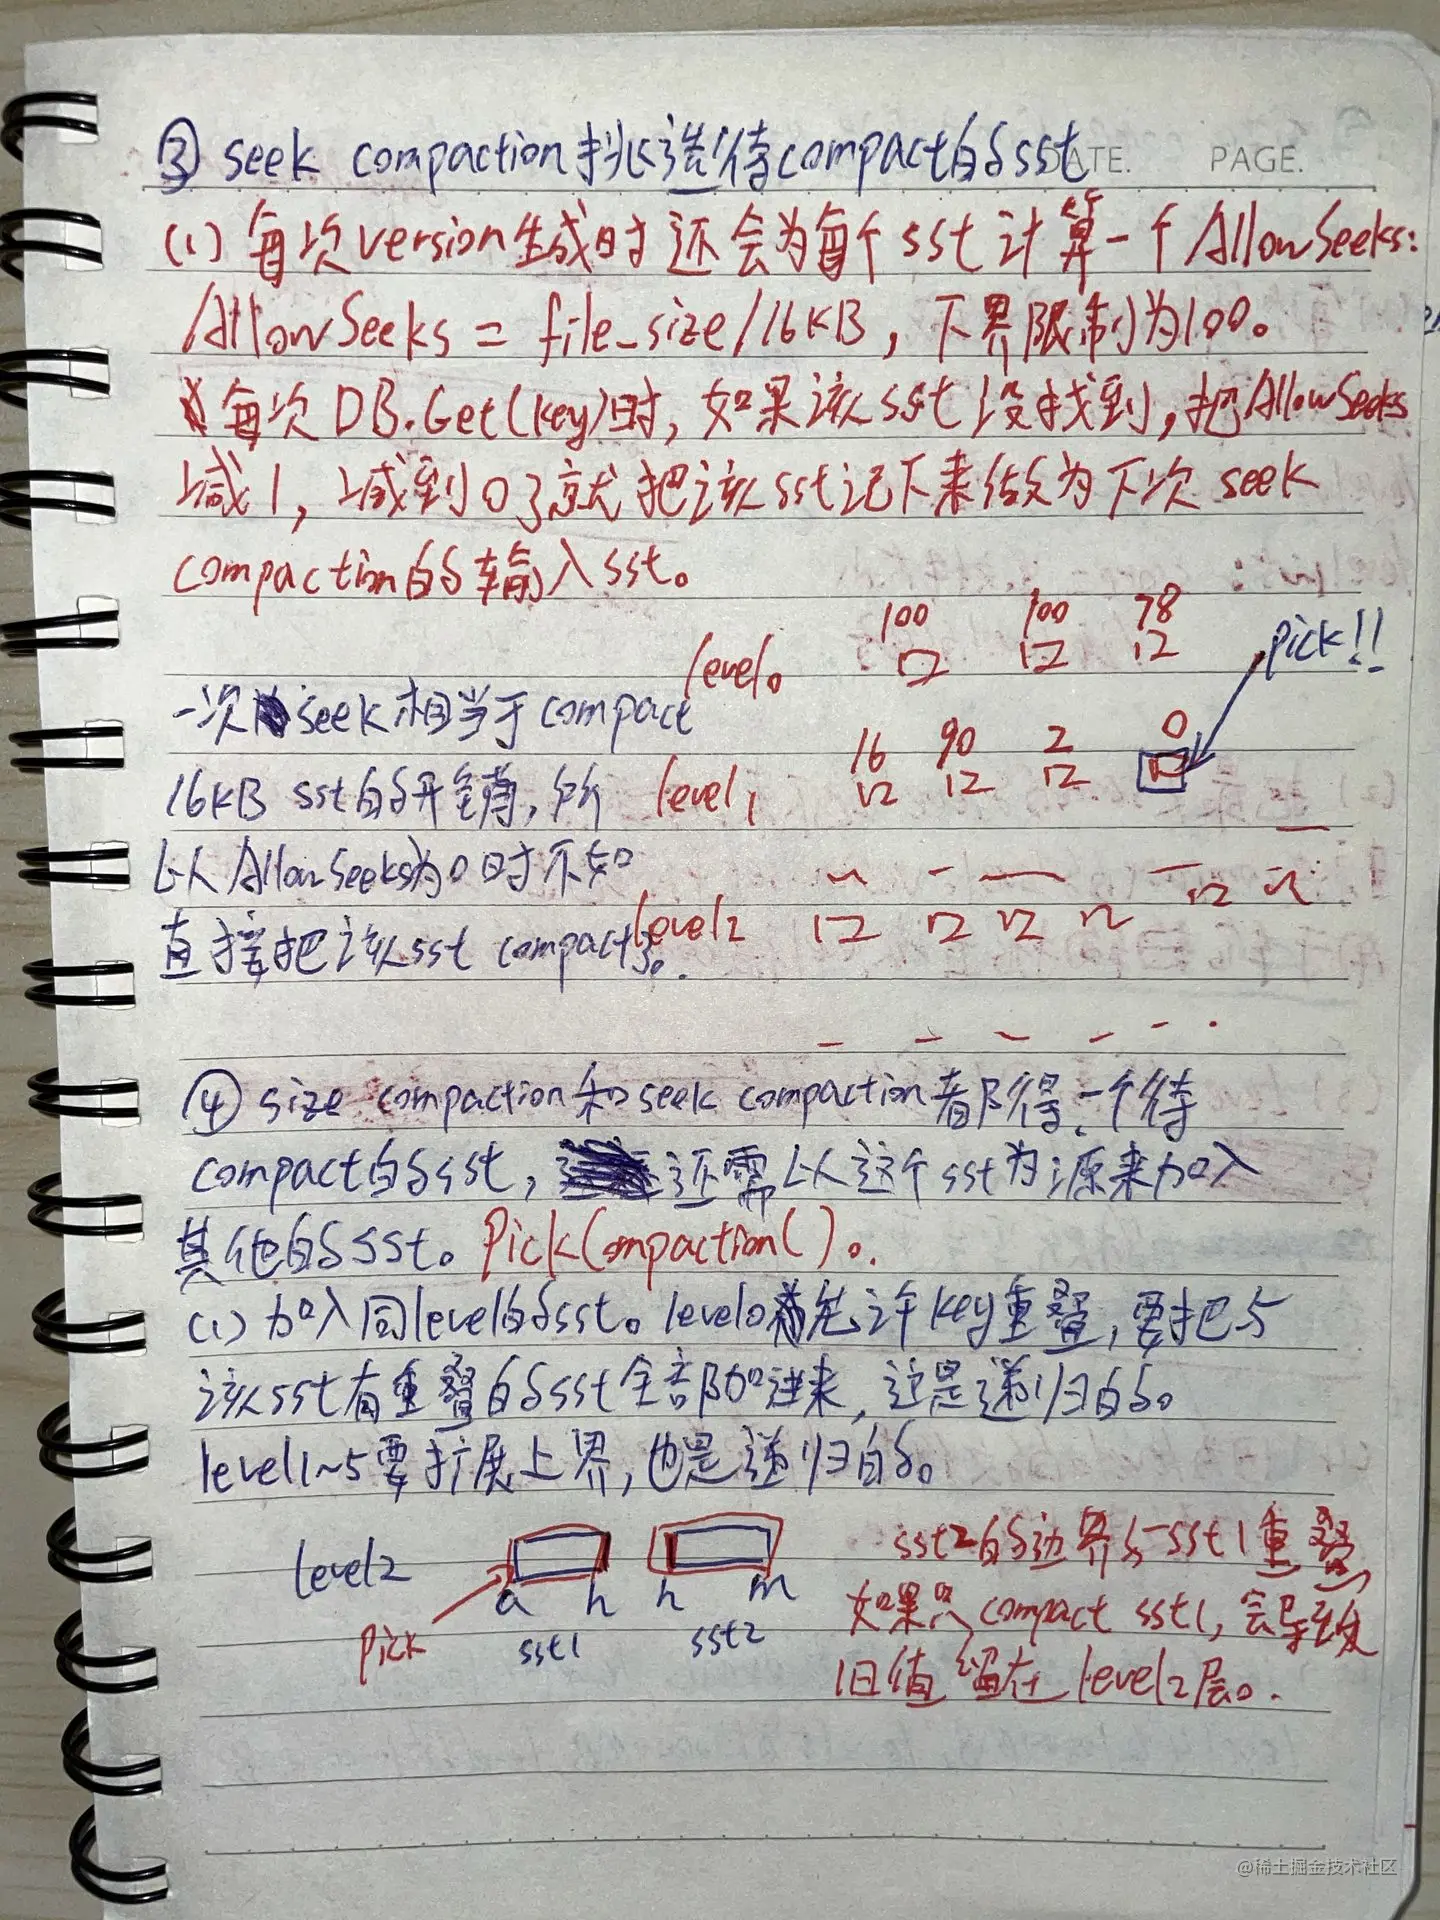 DATE. PAGE.
③ seek compaction挑选待compact的sst
(1) 每次version生成时还会为每个sst计算一个AllowSeeks:
AllowSeeks = file_size/16KB, 下界限制为100。
每次DB.Get(key)时,如果该sst没找到,把AllowSeeks
减1,减到0了就把该sst记下来做为下次 seek
compaction的输入sst。
100 100 78
level0
pick!!
一次seek相当于compact
16 90 2 0
16KB sst的开销,所
level1
以AllowSeeks为0时不如
直接把该sst compact了。
level2
④ size compaction和seek compaction都得一个待
compact的sst, 还需以这个sst为源来加入
其他的sst。PickCompaction()。
(1) 加入同level的sst。level0允许key重叠,要把与
该sst有重叠的sst全部加进来,这是递归的。
level1~5要扩展上界,也是递归的。
level2
a h h m
pick
sst1 sst2
sst2的边界与sst1重叠,
如果只compact sst1,会导致
旧值留在level2层。
@稀土掘金技术社区